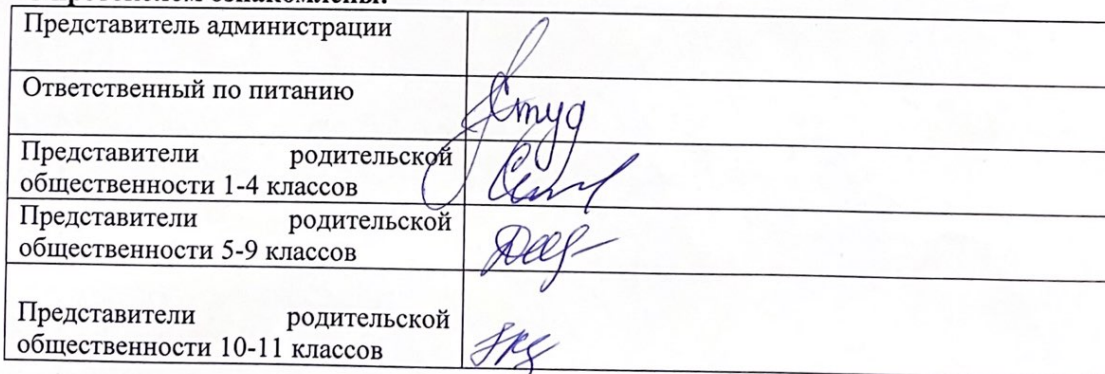 ознакомлены:
Представитель администрации
Ответственный по питанию
Студ
Представители родительской
общественности 1-4 классов
Представители родительской
общественности 5-9 классов
Представители родительской
общественности 10-11 классов